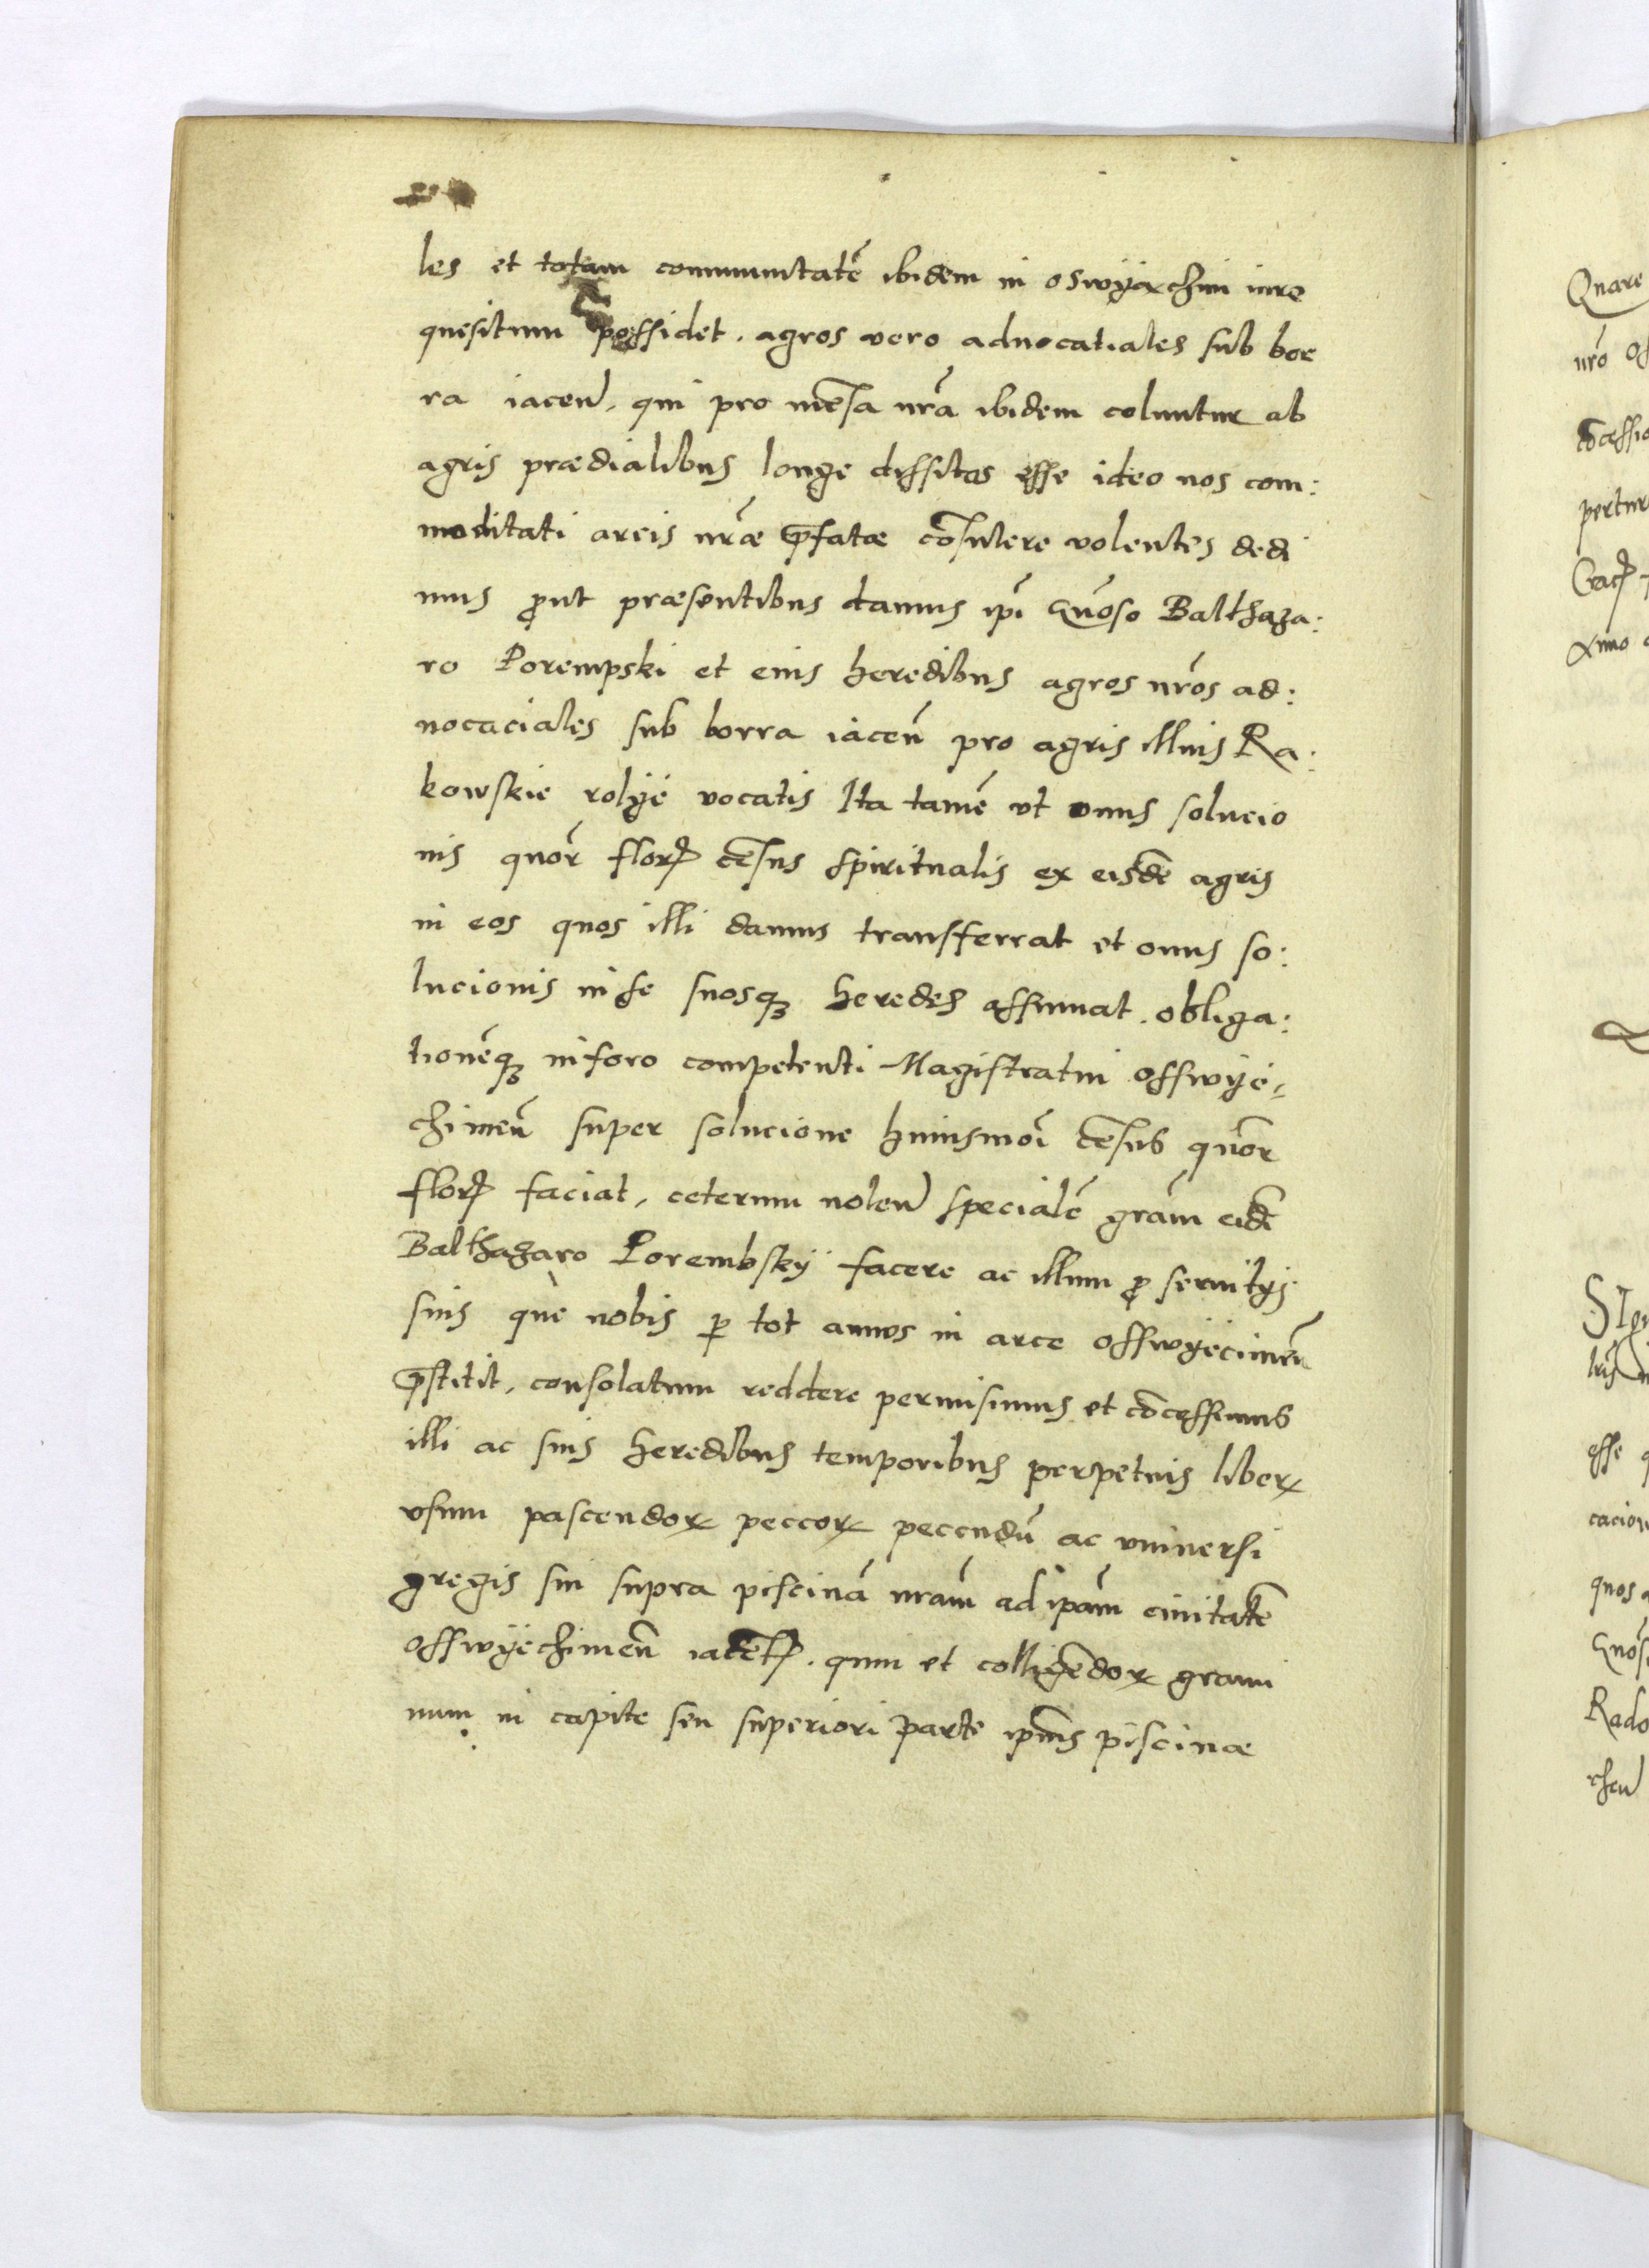 les et totam communitatē ibidem in oswyaxchim iure
quesitum possidet . agros vero aduocatiales sub bor
ra iaceń , qui pro mēsa nr̄a ibidem coluntur ab
agris prædialibus longe dissitos esse ideo nos com:
moditati arcis nr̄æ p̄fatæ cōsulere volentes dedi
mus ꝓut præsentibus damus ip̄i Gn̄oso Balthaza:
ro Porempski et eius heredibus agros nr̄os ad:
uocaciales sub borra iaceñ pro agris illius Ra:
kowskie rolÿe vocatis Ita tamē vt onus solucio
nis quor̄ florꝭ cēsus spiritualis ex eisdē agris
in eos quos illi damus transferrat et onus so:
lucionis in se suosqꝫ heredes assumat . obliga:
tionēqꝫ in foro competenti Magistratui osswÿe,,
chimeñ super solucione huiusmōi cēsus quor̄
florꝭ faciat , ceterum uolen̄ specialē gr̄am eidē
Balthazaro Porembskÿ facere ac illum ꝓ seruitÿs
suis què nobis ꝑ tot annos in arce osswÿecimeñ
p̄stitit , consolatum reddere permisimus et cōcessimus
illi ac suis heredibus temporibus perpetuis liberꝝ
vsum pascendoꝝ peccoꝝ pecendū ac vniuersi
gregis sui supra piscinā nr̄am ad ip̄am ciuitatē
osswÿechimeñ iacētꝭ . quin et colligēdoꝝ grami
num in capite seu superiori parte ip̄ius piscinæ
Quare
nr̄o
pertur
Anno
esse
cacion
quos
Rado